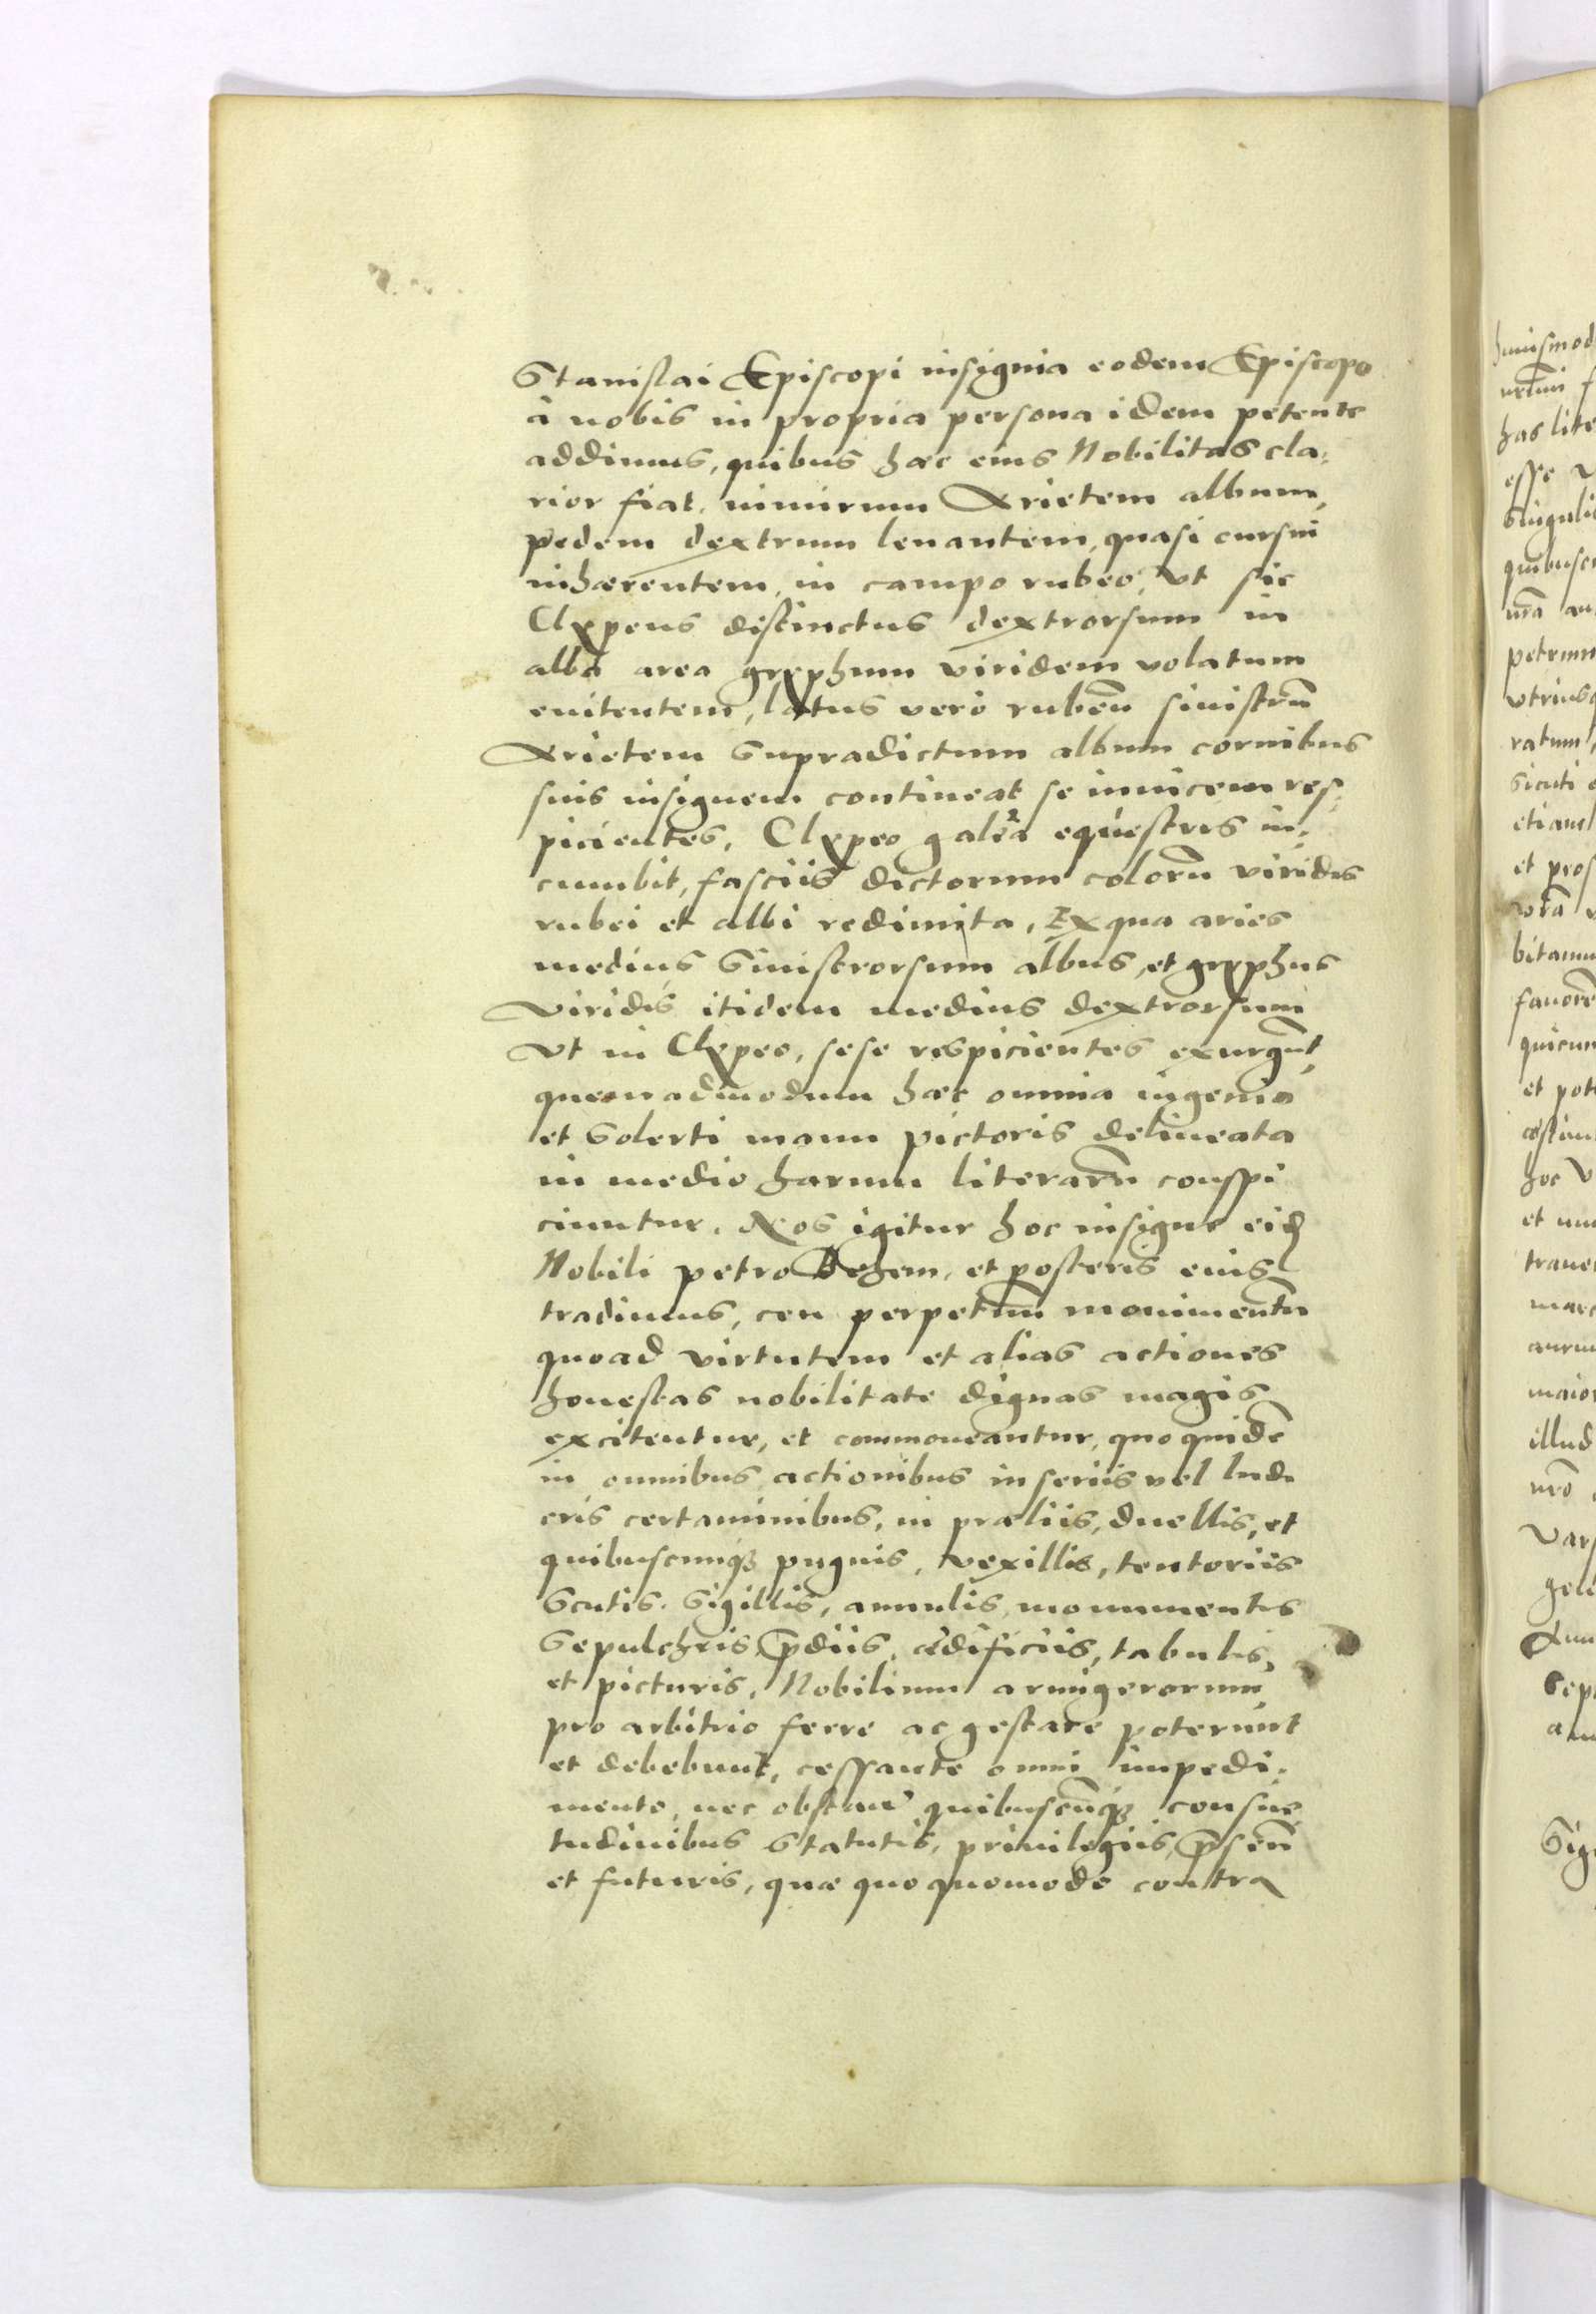 Stanislai Episcopi insignia eodem Episcopo
à nobis in propria persona idem petente
addimus, quibus hæc eius Nobilitas cla:
rior fiat, nimirum Arietem album,
pedem dextrum leuantem, quasi cursui
inhærentem, in campo rubeo, vt sic
Clypeus distinctus dextrorsum in
alba area gryphum viridem volatum
enitentem, latus vero rubeū sinistrū
Arietem supradictum album cornibus
suis insignem contineat se inuicem res:
picientes. Clypeo galea equestris in:
cumbit, fasciis dictorum colorū viridis
rubei et albi redimita, Ex qua aries
medius sinistrorsum albus, et gryphus
viridis itidem medius dextrorsum
vt in Clypeo, sese respicientes exurgūt,
quemadmodum hæc omnia ingenio
et solerti manu pictoris delineata
in medio harum literarū conspi
ciuntur. Nos igitur hoc insigne eid
Nobili petro Behem, et posteris eius
tradimus, ceu perpetuū monimentū
quoad virtutem et alias actiones
honestas nobilitate dignas magis
excitentur, et commoueantur, quo quidē
in omnibus actionibus in seriis vel ludi
cris certaminibus, in præliis, duellis, et
quibuscunqꝫ pugnis, vexillis, tentoriis
scutis, sigillis, annulis, monumentis
sepulchris, p̄diis, ædificiis, tabulis,
et picturis, Nobilium armigerorum,
pro arbitrio ferre ac gestare poterunt
et debebunt, cessante omni impedi:
mento, nec obstan' quibuscūqꝫ consue
tudinibus statutis, priuilegiis, p̄sen̄
et futuris, quæ quoquomodo contra